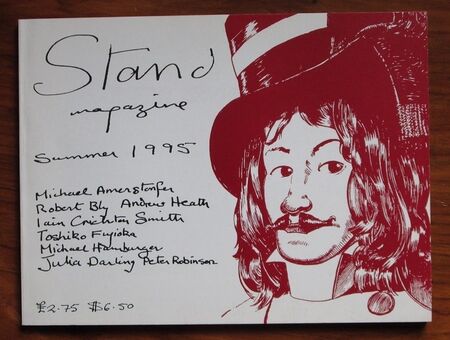 Stand
magazine
Summer 1995
Michael Amerstorfer
Robert Bly Andrew Heath
Iain Crichton Smith
Toshiko Fujioka
Michael Hamburger
Julia Darling Peter Robinson
£2.75 $6.50